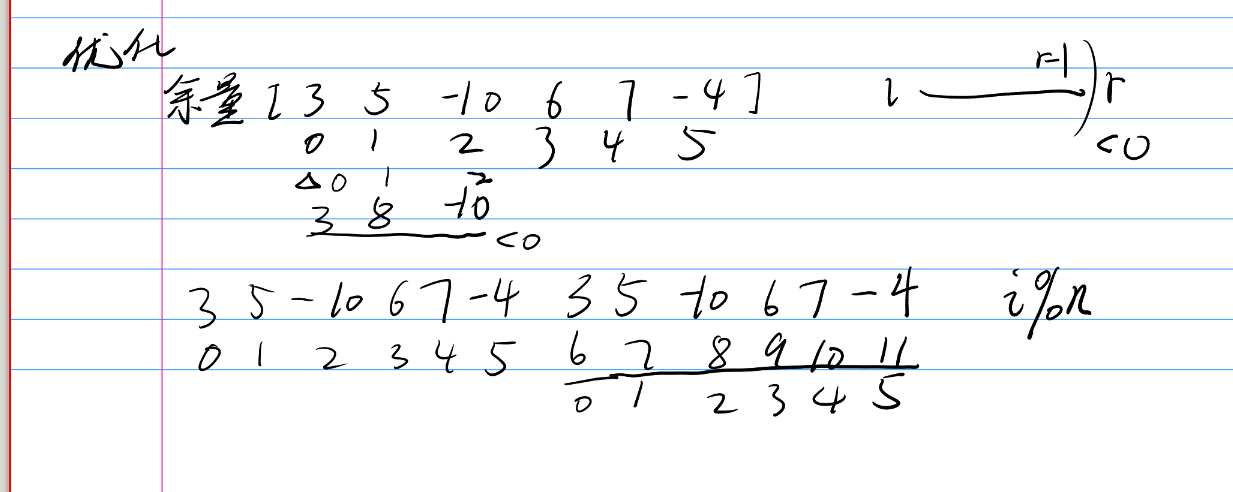 优化
余量 [ 3 5 -10 6 7 -4 ] l r-1 ) r
0 1 2 3 4 5 <0
△ 0 1 2
3 8 -10
<0
3 5 -10 6 7 -4 3 5 -10 6 7 -4 i%n
0 1 2 3 4 5 6 7 8 9 10 11
0 1 2 3 4 5